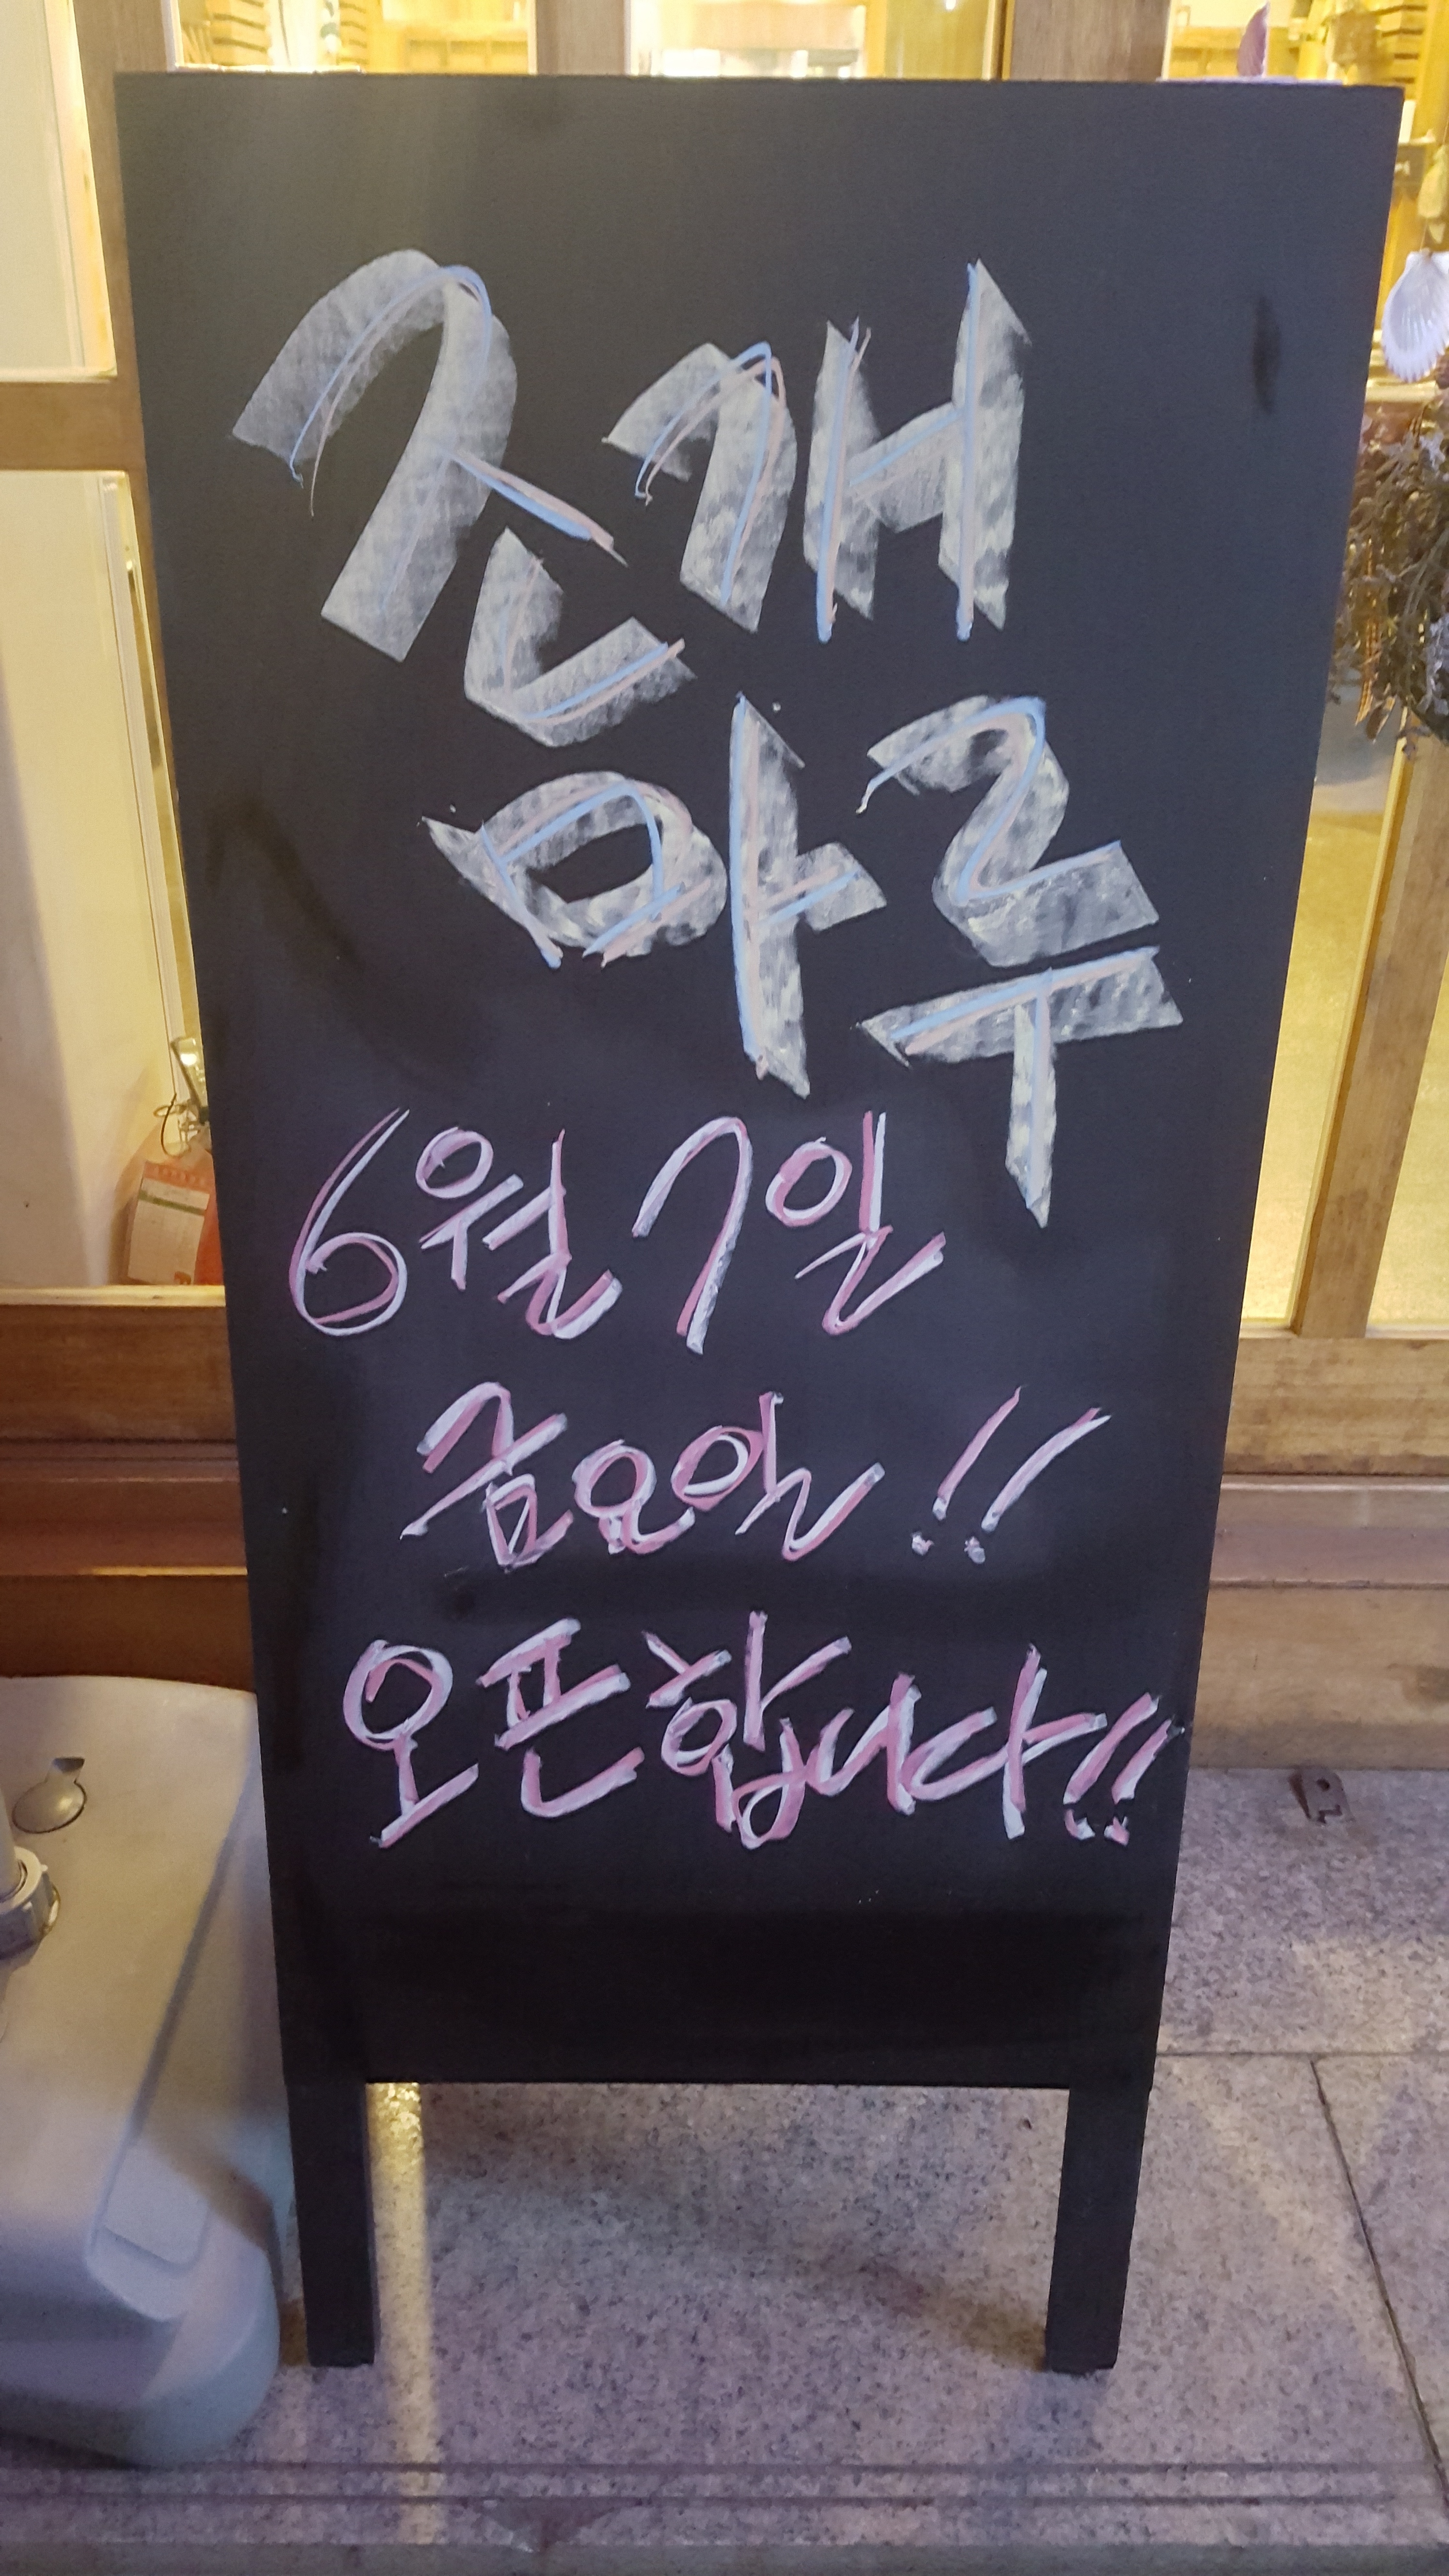 조개
마루
6월 7일
금요일!!
오픈합니다!!